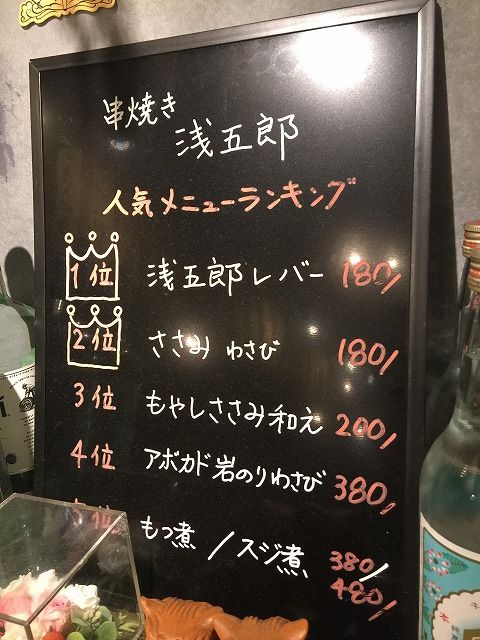 串焼き
浅五郎
人気メニューランキング
1位 浅五郎レバー 180/
2位 ささみ わさび 180/
3位 もやしささみ和え 200/
4位 アボカド岩のりわさび 380/
5位 もつ煮/スジ煮 380/
480/